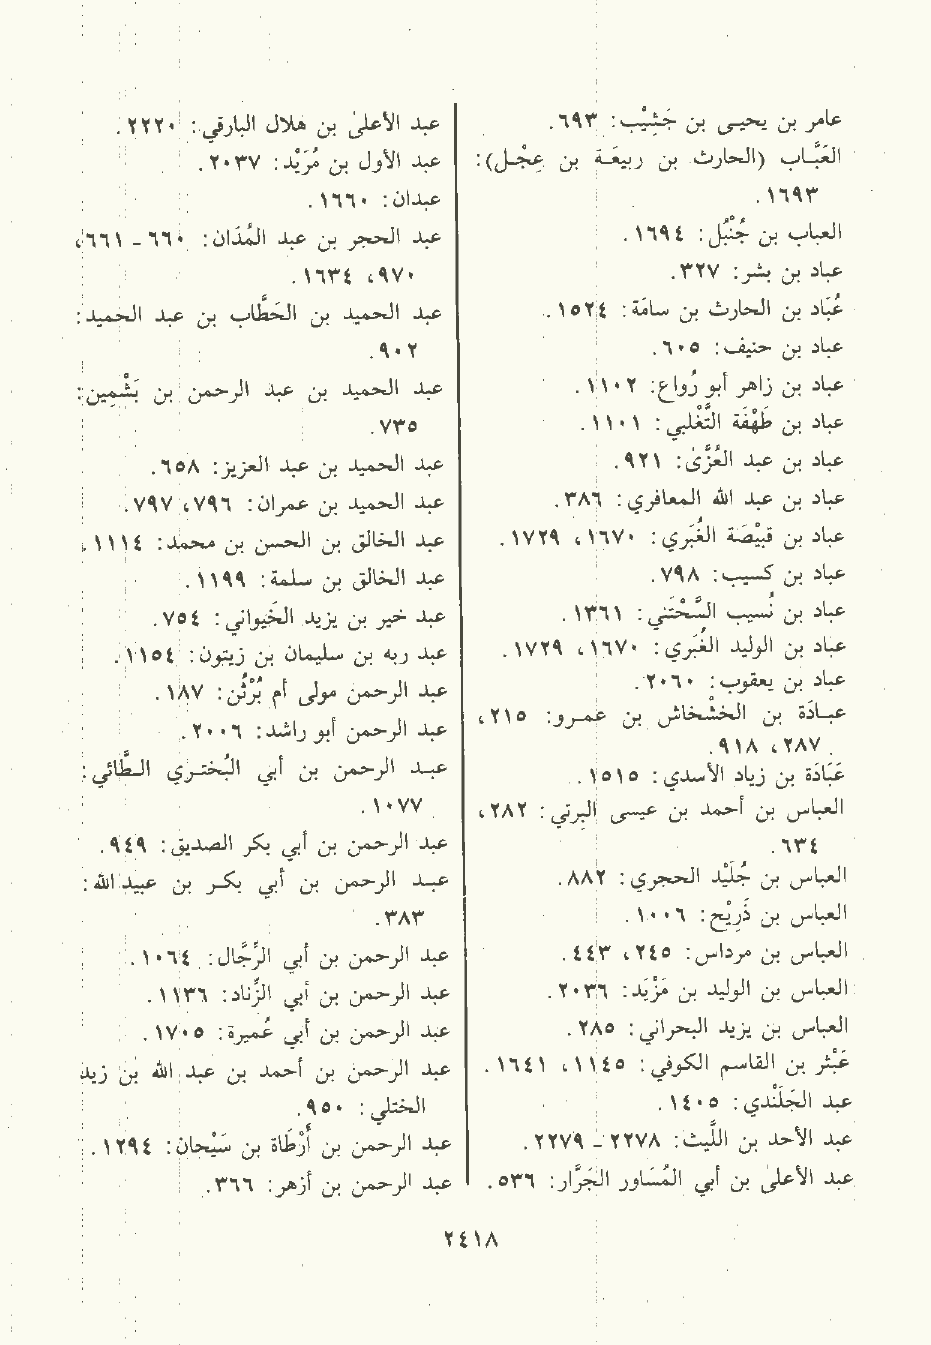 عامر بن يحيـى بن جَثِيْب: ٦٩٣.
العَبَّـاب (الحارث بن ربيعَـة بن عِجْـل):
١٦٩٣.
العباب بن جُنْبُل: ١٦٩٤.
عباد بن بشر: ٣٢٧.
عُبَاد بن الحارث بن سامَة: ١٥٢٤.
عباد بن حنيف: ٦٠٥.
عباد بن زاهر أبو رُواع: ١١٠٢.
عباد بن طَهْفَة التَّغْلبي: ١١٠١.
عباد بن عبد العُزَّىٰ: ٩٢١.
عباد بن عبد الله المعافري: ٣٨٦.
عباد بن قبيْصَة الغُبَري: ١٦٧٠، ١٧٢٩.
عباد بن كسيب: ٧٩٨.
عباد بن نُسيب السَّحْتَني: ١٣٦١.
عباد بن الوليد الغُبَري: ١٦٧٠، ١٧٢٩.
عباد بن يعقوب: ٢٠٦٠.
عبـادَة بن الخشْخاش بن عمـرو: ٢١٥،
٢٨٧، ٩١٨.
عَبَادَة بن زياد الأسدي: ١٥١٥.
العباس بن أحمد بن عيسى البِرتي: ٢٨٢،
٦٣٤.
العباس بن جُلَيْد الحجري: ٨٨٢.
العباس بن ذَرِيْح: ١٠٠٦.
العباس بن مرداس: ٢٤٥، ٤٤٣.
العباس بن الوليد بن مَزْيَد: ٢٠٣٦.
العباس بن يزيد البحراني: ٢٨٥.
عَبْثر بن القاسم الكوفي: ١١٤٥، ١٦٤١.
عبد الجَلَنْدي: ١٤٠٥.
عبد الأحد بن اللَّيث: ٢٢٧٨ ـ ٢٢٧٩.
عبد الأعلىٰ بن أبي المُسَاور الجَرَّار: ٥٣٦.
عبد الأعلىٰ بن هلال البارقي: ٢٢٢٠.
عبد الأول بن مُرَيْد: ٢٠٣٧.
عبدان: ١٦٦٠.
عبد الحجر بن عبد المُدَان: ٦٦٠ ـ ٦٦١،
٩٧٠، ١٦٣٤.
عبد الحميد بن الخَطَّاب بن عبد الحميد:
٩٠٢.
عبد الحميد بن عبد الرحمن بن بَشْمِين:
٧٣٥.
عبد الحميد بن عبد العزيز: ٦٥٨.
عبد الحميد بن عمران: ٧٩٦، ٧٩٧.
عبد الخالق بن الحسن بن محمد: ١١١٤.
عبد الخالق بن سلمة: ١١٩٩.
عبد خير بن يزيد الخَيواني: ٧٥٤.
عبد ربه بن سليمان بن زيتون: ١١٥٤.
عبد الرحمن مولى أم بُرْثُن: ١٨٧.
عبد الرحمن أبو راشد: ٢٠٠٦.
عبـد الرحمن بن أبي البُختـري الـطَّائي:
١٠٧٧.
عبد الرحمن بن أبي بكر الصديق: ٩٤٩.
عبـد الرحمن بن أبي بكـر بن عبيد الله:
٣٨٣.
عبد الرحمن بن أبي الرِّجَّال: ١٠٦٤.
عبد الرحمن بن أبي الزِّناد: ١١٣٦.
عبد الرحمن بن أبي عُميرة: ١٧٠٥.
عبد الرحمن بن أحمد بن عبد الله بن زيد
الختلي: ٩٥٠.
عبد الرحمن بن أَرْطَاة بن سَيْحان: ١٢٩٤.
عبد الرحمن بن أزهر: ٣٦٦.
٢٤١٨